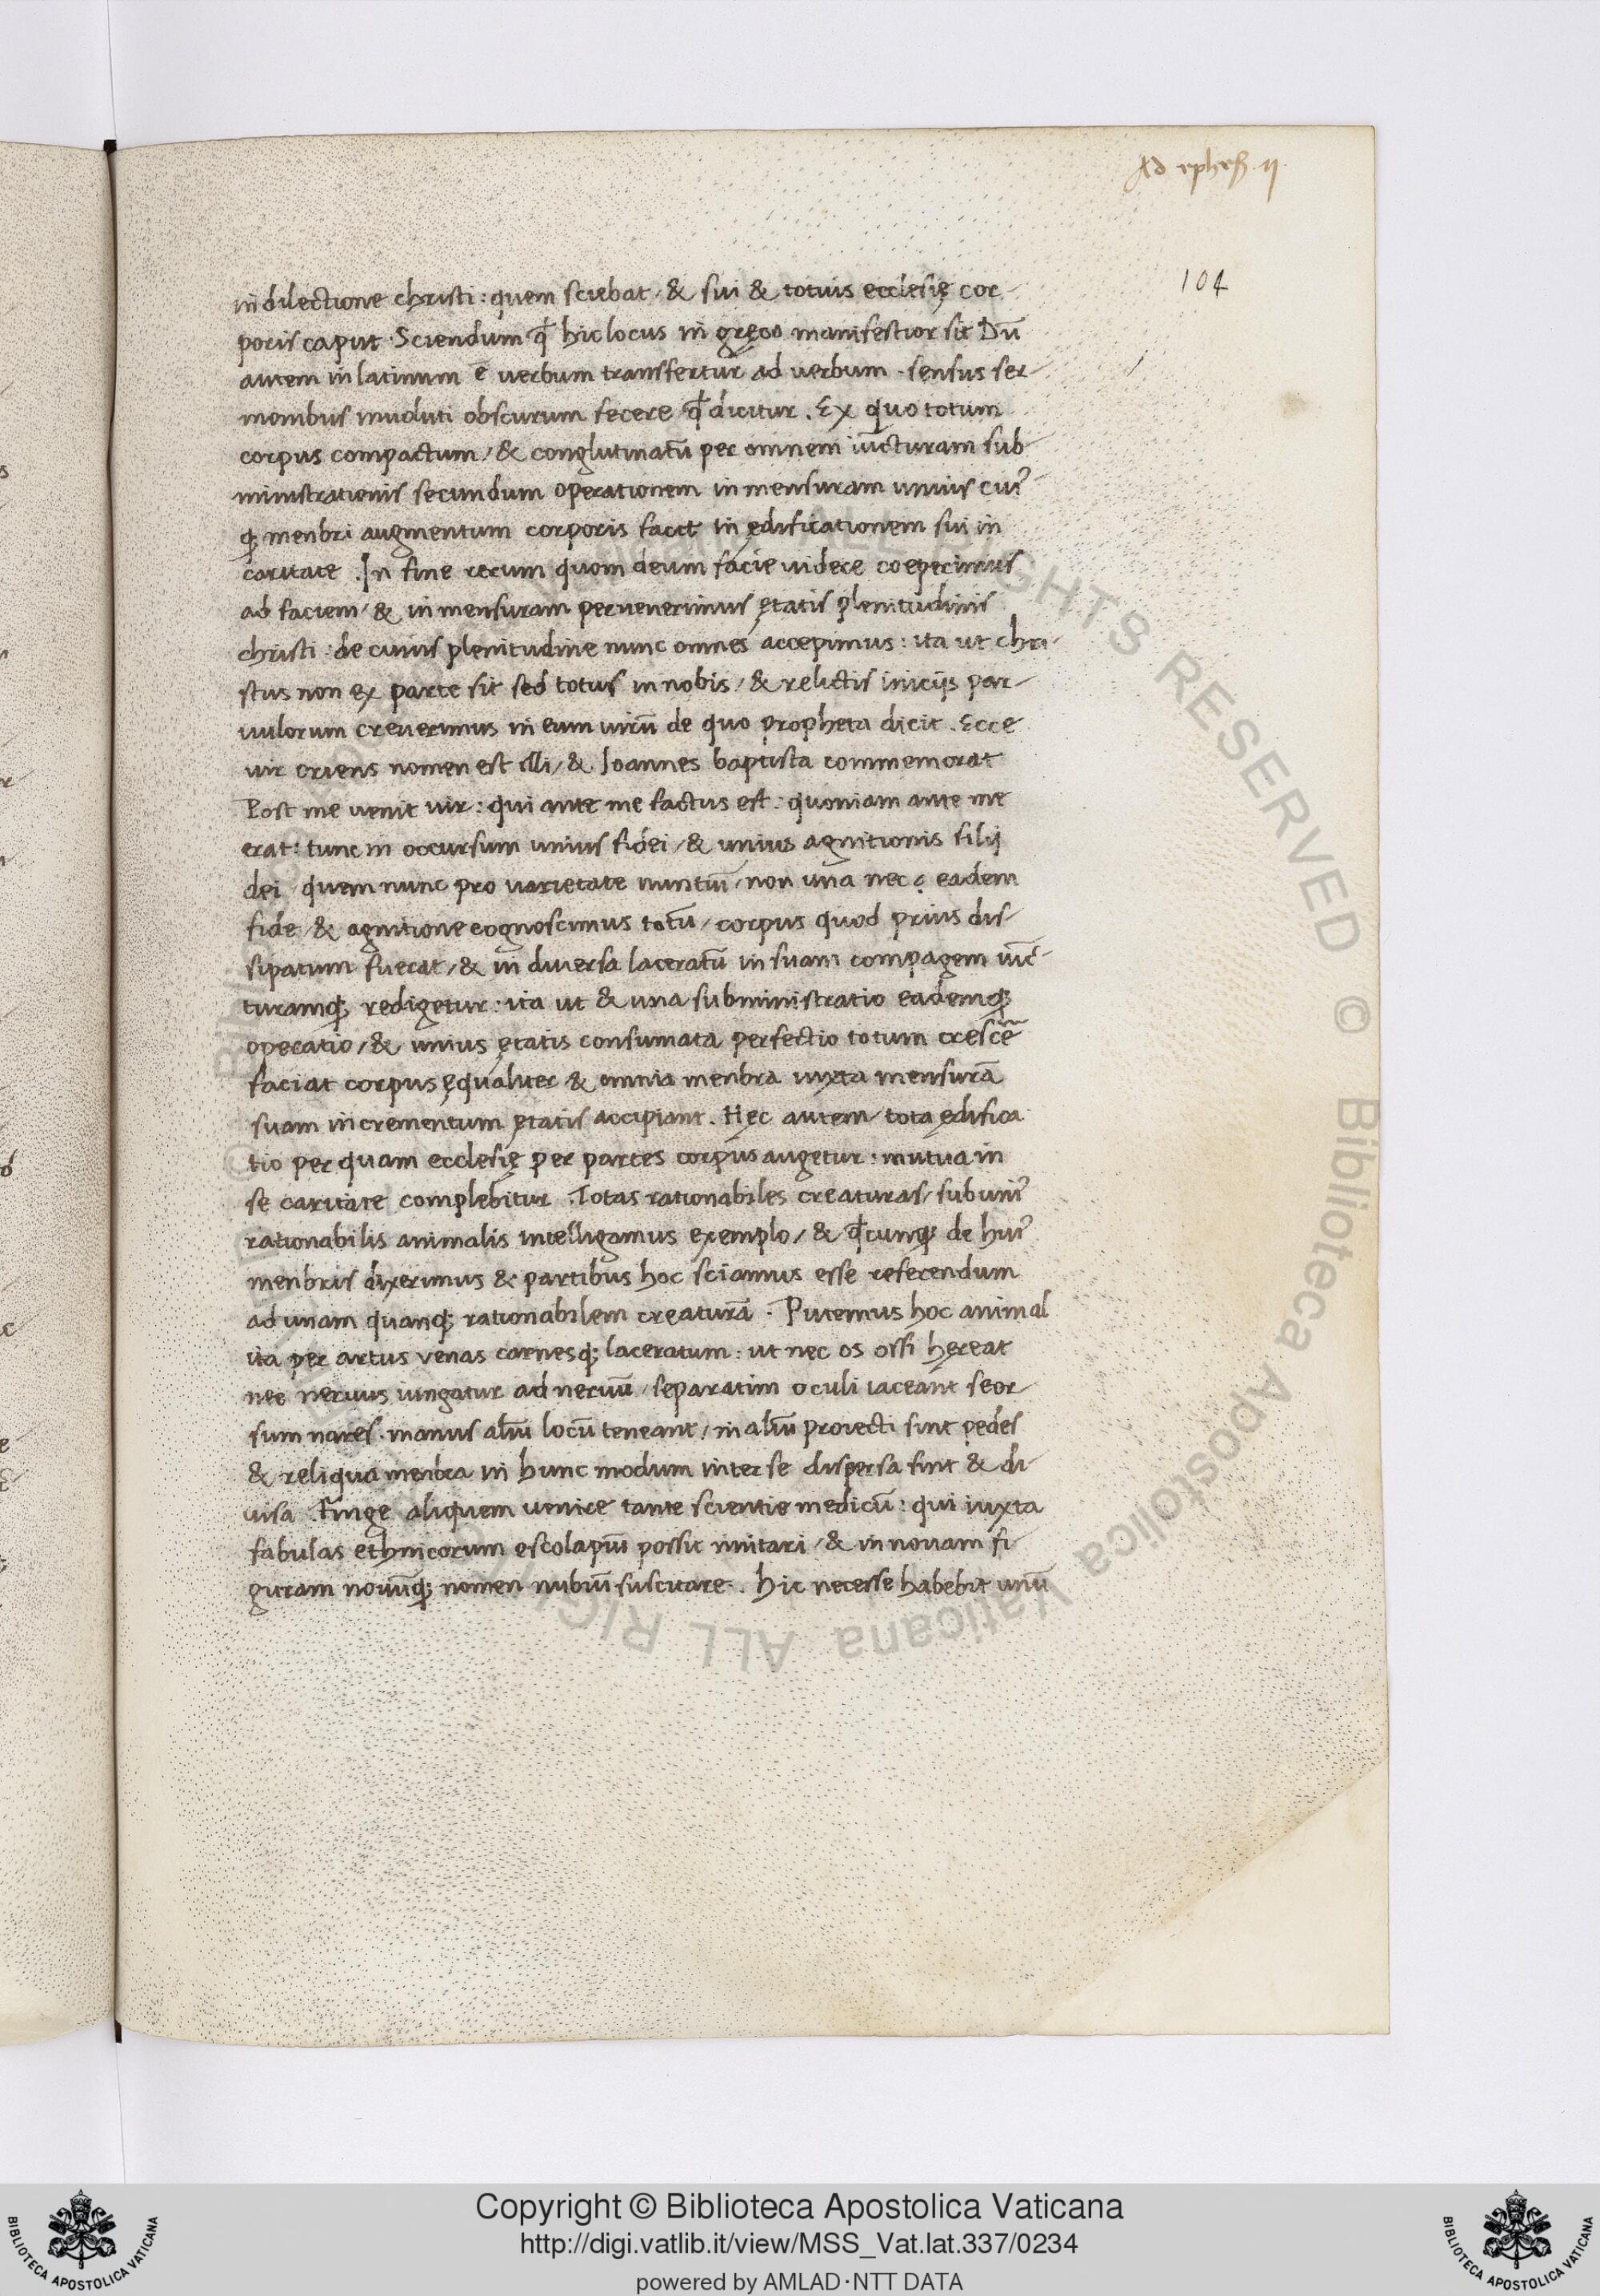 Ad ephes̄. ij.
104
in dilectione christi: quem sciebat / & sui & totius ecclesię cor-
poris caput. Sciendum ꝙ hic locus in gręco manifestior sit Dū
autem in latinum ē verbum transfertur ad verbum. sensus ser-
monibus inuoluti obscurum fecere qđ dicitur. Ex quo totum
corpus compactum / & conglutinatū per omnem iūcturam sub-
ministrationis secundum operationem in mensuram unius cui9
q; menbri augmentum corporis facit in ędificationem sui in
caritate. In fine rerum quom deum facie uidere coeperimus
ad faciem / & in mensuram peruenerimus ętatis plenitudinis
christi: de cuius plenitudine nunc omnes accepimus: ita ut chri-
stus non ex parte sit sed totus in nobis / & relictis inicijs par-
uulorum creuerimus in eum uirū de quo propheta dicit. Ecce
uir oriens nomen est illi / & Ioannes baptista commemorat
Post me uenit uir: qui ante me factus est: quoniam ante me
erat: tunc in occursum unius fidei / & unius agnitionis filij
dei quem nunc pro varietate non una nec eadem
fide / & agnitione cognoscimus totū / corpus quod prius dis-
sipatum fuerat / & in diuersa laceratū in suam compagem iūc-
turamq; redigetur: ita ut & una subministratio eademq;
operatio / & unius ętatis consumata perfectio totum crescē
faciat corpus ęqualiter & omnia menbra iuxta mensurā
suam incrementum ętatis accipiant. Hęc autem tota ędifica-
tio per quam ecclesię per partes corpus augetur: mutua in
se caritate complebitur. Totas rationabiles creaturas / sub uni9
rationabilis animalis intelligamus exemplo / & qđcunq; de hui9
menbris dixerimus & partibus hoc sciamus esse referendum
ad unam quanq; rationabilem creaturā. Putemus hoc animal
ita per artus venas carnesq; laceratum: ut nec os ossi hęreat
nec neruus iungatur ad neruū / separatim oculi iaceant seor-
sum nares. manus aliū locū teneant / in aliū proiecti sint pedes
& reliqua menbra in hunc modum inter se dispersa sint & di-
uisa. Finge aliquem uenire tante scientie medicū: qui iuxta
fabulas ethnicorum escolapiū possit imitari / & in nouam fi-
guram nouūq; nomen suscitare. Hic necesse habebit unū
BIBLIOTECA APOSTOLICA VATICANA
Copyright © Biblioteca Apostolica Vaticana
http://digi.vatlib.it/view/MSS_Vat.lat.337/0234
powered by AMLAD·NTT DATA
BIBLIOTECA APOSTOLICA VATICANA